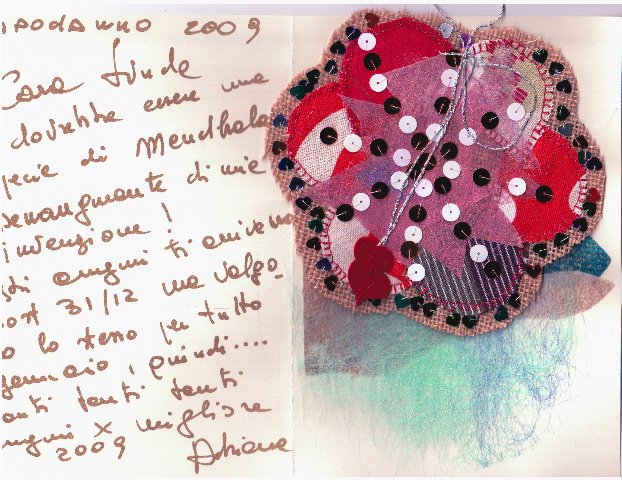 apodanno 2009
Cara Linda
dovrebbe essere una
pecie di Mendhala
 di mie
invenzione!
 auguri ti arriveranno
ost 31/12 ma valgo-
o lo stesso per tutto
gennaio, quindi....
anti tanti tanti
uguri x migliore
2009 Adriana